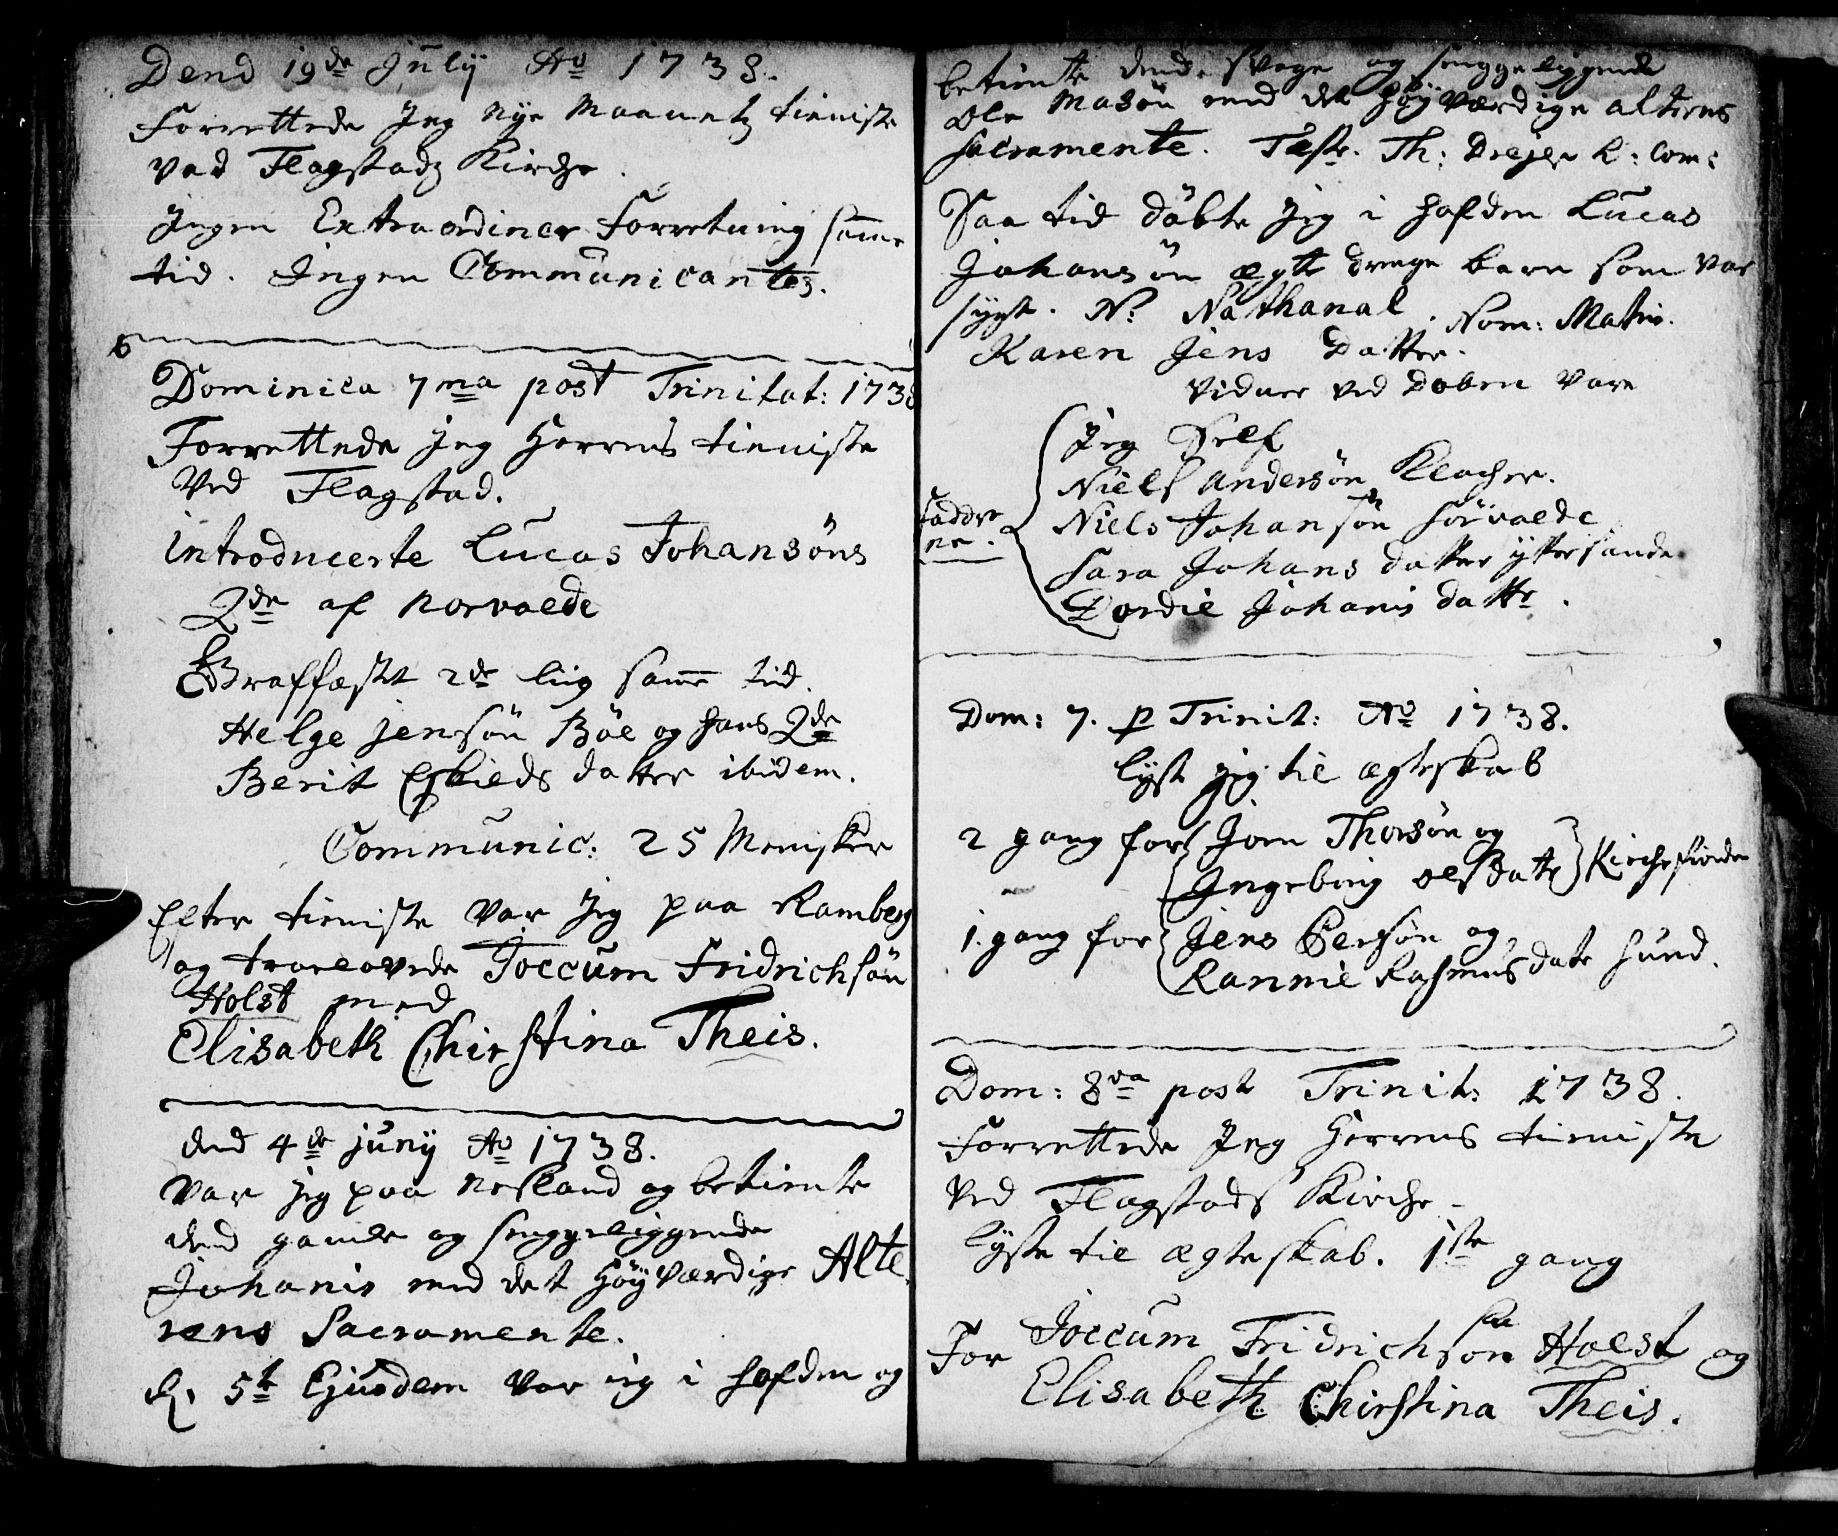 Dend 19de July Ao 1738.
Forrettede Jeg Nye Maanetz tieniste
ved Flagstadz Kirche.
Ingen Extraordiner Forretning samme
tid. Ingen Communicantes.
Dominica 7ma post Trinitat: 1738
Forrettede Jeg Herrens tieniste
Ved Flagstad.
introducerte Lucas Johansöns
Qde af Norvaede
Graffæstet 2de liig samme tid.
Helge jensön Böe og hans Qde
Berit Eskields datter ibidem.
Communic: 25 Menisker
Efter tieniste var Jeg paa Ramberg
og troelovede Joccum Fridrichsön
Holst med
Elisabeth Chirstina Theis.
dend 4de juny Ao 1738.
Var jeg paa Nesland og betiente
dend gamle og sengeliggende
Johanis med det Höyværdige Alte
rens Sacramente.
d. 5te Ejusdem var jeg i Hafden og
betiente dend svage og senggeligende
Ole Masön med det Höyværdige alterens
Sacramente. Test. Th: Drejer L: Com:
Saa tid döbte jeg i Hafden Lucas
Johansön ægte drenge barn som var
sygt. N: Nathanal. Nom: Matris.
Karen Jens Datter.
Vidner ved Doben vare
Jeg Self
Niels Andersön Klocher.
Niels Johansön Sörvaede
Sara Johans datter yttersande
Dordie Johanis datter.
Fadder
ne.
Dom: 7. p Trinit: Ao 1738.
lyst jeg til ægteskab
2 gang for Jorn Thorsön og
Ingeborg olsdatter Kirchefiorden
1. gang for Jens Persön og
Rannie Rasmusdater Sund.
Dom: 8va post Trinit: 1738.
Forrettede Jeg Herrens tieniste
ved Flagstads Kirche
lyste til ægteskab. 1ste gang
For Joccum Fridrichsön Holst og
Elisabeth Chirstina Theis.